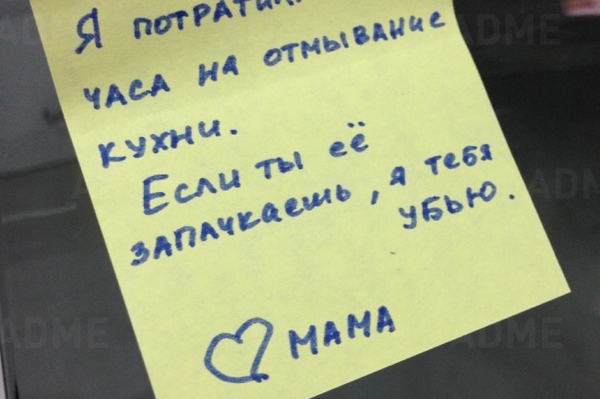 Я
ЧАСА НА ОТМЫВАНИЕ
КУХНИ.
Если ты её
ЗАПАЧКАЕШЬ, я тебя
убью.
МАМА
ADME
ADME
ADME
ADME